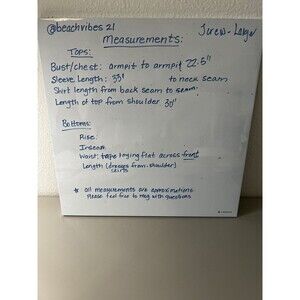 @beachvibes21
Jcrew - Large
Measurements:
Tops:
Bust/chest: armpit to armpit 22.5"
Sleeve Length: 33" to neck seam
Shirt length from back seam to seam
Length of top from shoulder 30"
Bottoms:
Rise:
Inseam
Waist: laying flat across front
Length (dresses from shoulder)
skirts
* all measurements are approximations
Please feel free to msg with questions